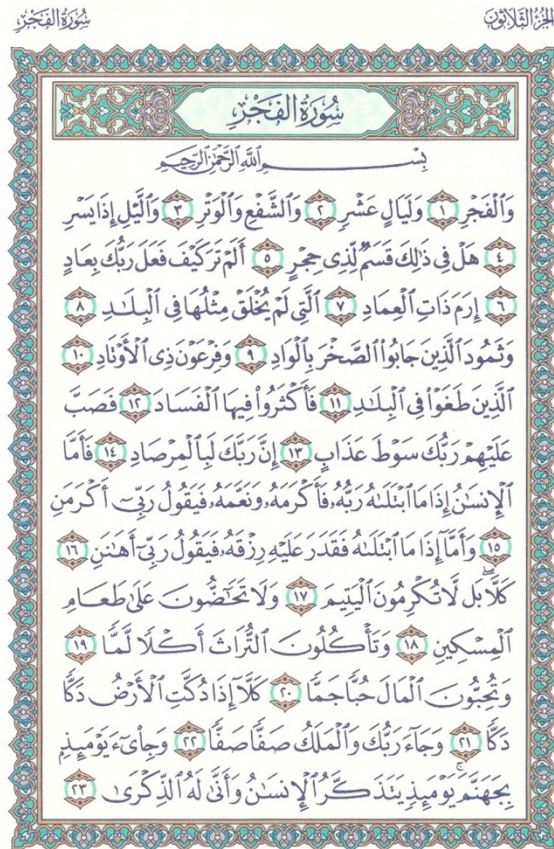 سُورَةُ الفَجْرِ
الجُزءُ الثَّلَاثُونَ
سُورَةُ الفَجْرِ
بِسْمِ اللَّهِ الرَّحْمَٰنِ الرَّحِيمِ
وَالْفَجْرِ ١ وَلَيَالٍ عَشْرٍ ٢ وَالشَّفْعِ وَالْوَتْرِ ٣ وَالَّيْلِ إِذَا يَسْرِ
٤ هَلْ فِى ذَٰلِكَ قَسَمٌ لِّذِى حِجْرٍ ٥ أَلَمْ تَرَ كَيْفَ فَعَلَ رَبُّكَ بِعَادٍ
٦ إِرَمَ ذَاتِ الْعِمَادِ ٧ الَّتِى لَمْ يُخْلَقْ مِثْلُهَا فِى الْبِلَٰدِ ٨
وَثَمُودَ الَّذِينَ جَابُوا الصَّخْرَ بِالْوَادِ ٩ وَفِرْعَوْنَ ذِى الْأَوْتَادِ ١٠
الَّذِينَ طَغَوْا فِى الْبِلَٰدِ ١١ فَأَكْثَرُوا فِيهَا الْفَسَادَ ١٢ فَصَبَّ
عَلَيْهِمْ رَبُّكَ سَوْطَ عَذَابٍ ١٣ إِنَّ رَبَّكَ لَبِالْمِرْصَادِ ١٤ فَأَمَّا
الْإِنسَٰنُ إِذَا مَا ابْتَلَىٰهُ رَبُّهُۥ فَأَكْرَمَهُۥ وَنَعَّمَهُۥ فَيَقُولُ رَبِّىٓ أَكْرَمَنِ
١٥ وَأَمَّآ إِذَا مَا ابْتَلَىٰهُ فَقَدَرَ عَلَيْهِ رِزْقَهُۥ فَيَقُولُ رَبِّىٓ أَهَٰنَنِ ١٦
كَلَّا ۖ بَل لَّا تُكْرِمُونَ الْيَتِيمَ ١٧ وَلَا تَحَٰٓضُّونَ عَلَىٰ طَعَامِ
الْمِسْكِينِ ١٨ وَتَأْكُلُونَ التُّرَاثَ أَكْلًا لَّمًّا ١٩
وَتُحِبُّونَ الْمَالَ حُبًّا جَمًّا ٢٠ كَلَّآ إِذَا دُكَّتِ الْأَرْضُ دَكًّا
دَكًّا ٢١ وَجَآءَ رَبُّكَ وَالْمَلَكُ صَفًّا صَفًّا ٢٢ وَجِا۟ىٓءَ يَوْمَئِذٍ
بِجَهَنَّمَ ۚ يَوْمَئِذٍ يَتَذَكَّرُ الْإِنسَٰنُ وَأَنَّىٰ لَهُ الذِّكْرَىٰ ٢٣